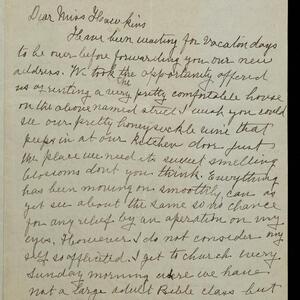 Dear Miss Hawkins
Have been waiting for Vacation days
to be over before forwarding you our new
address. We took the opportunity offered
us of renting a very pretty comfortable house
on the above named street. I wish you could
see our pretty honeysuckle vine that
peeps in at our kitchen door just
the place we need its sweet smelling
blossoms dont you think. Everything
has been moving on smoothly can as
yet see about the same so no chance
for any relief by an operation on my
eyes. However I do not consider my
self so afflicted. I get to church every
Sunday morning where we have
not a large adult Bible class but